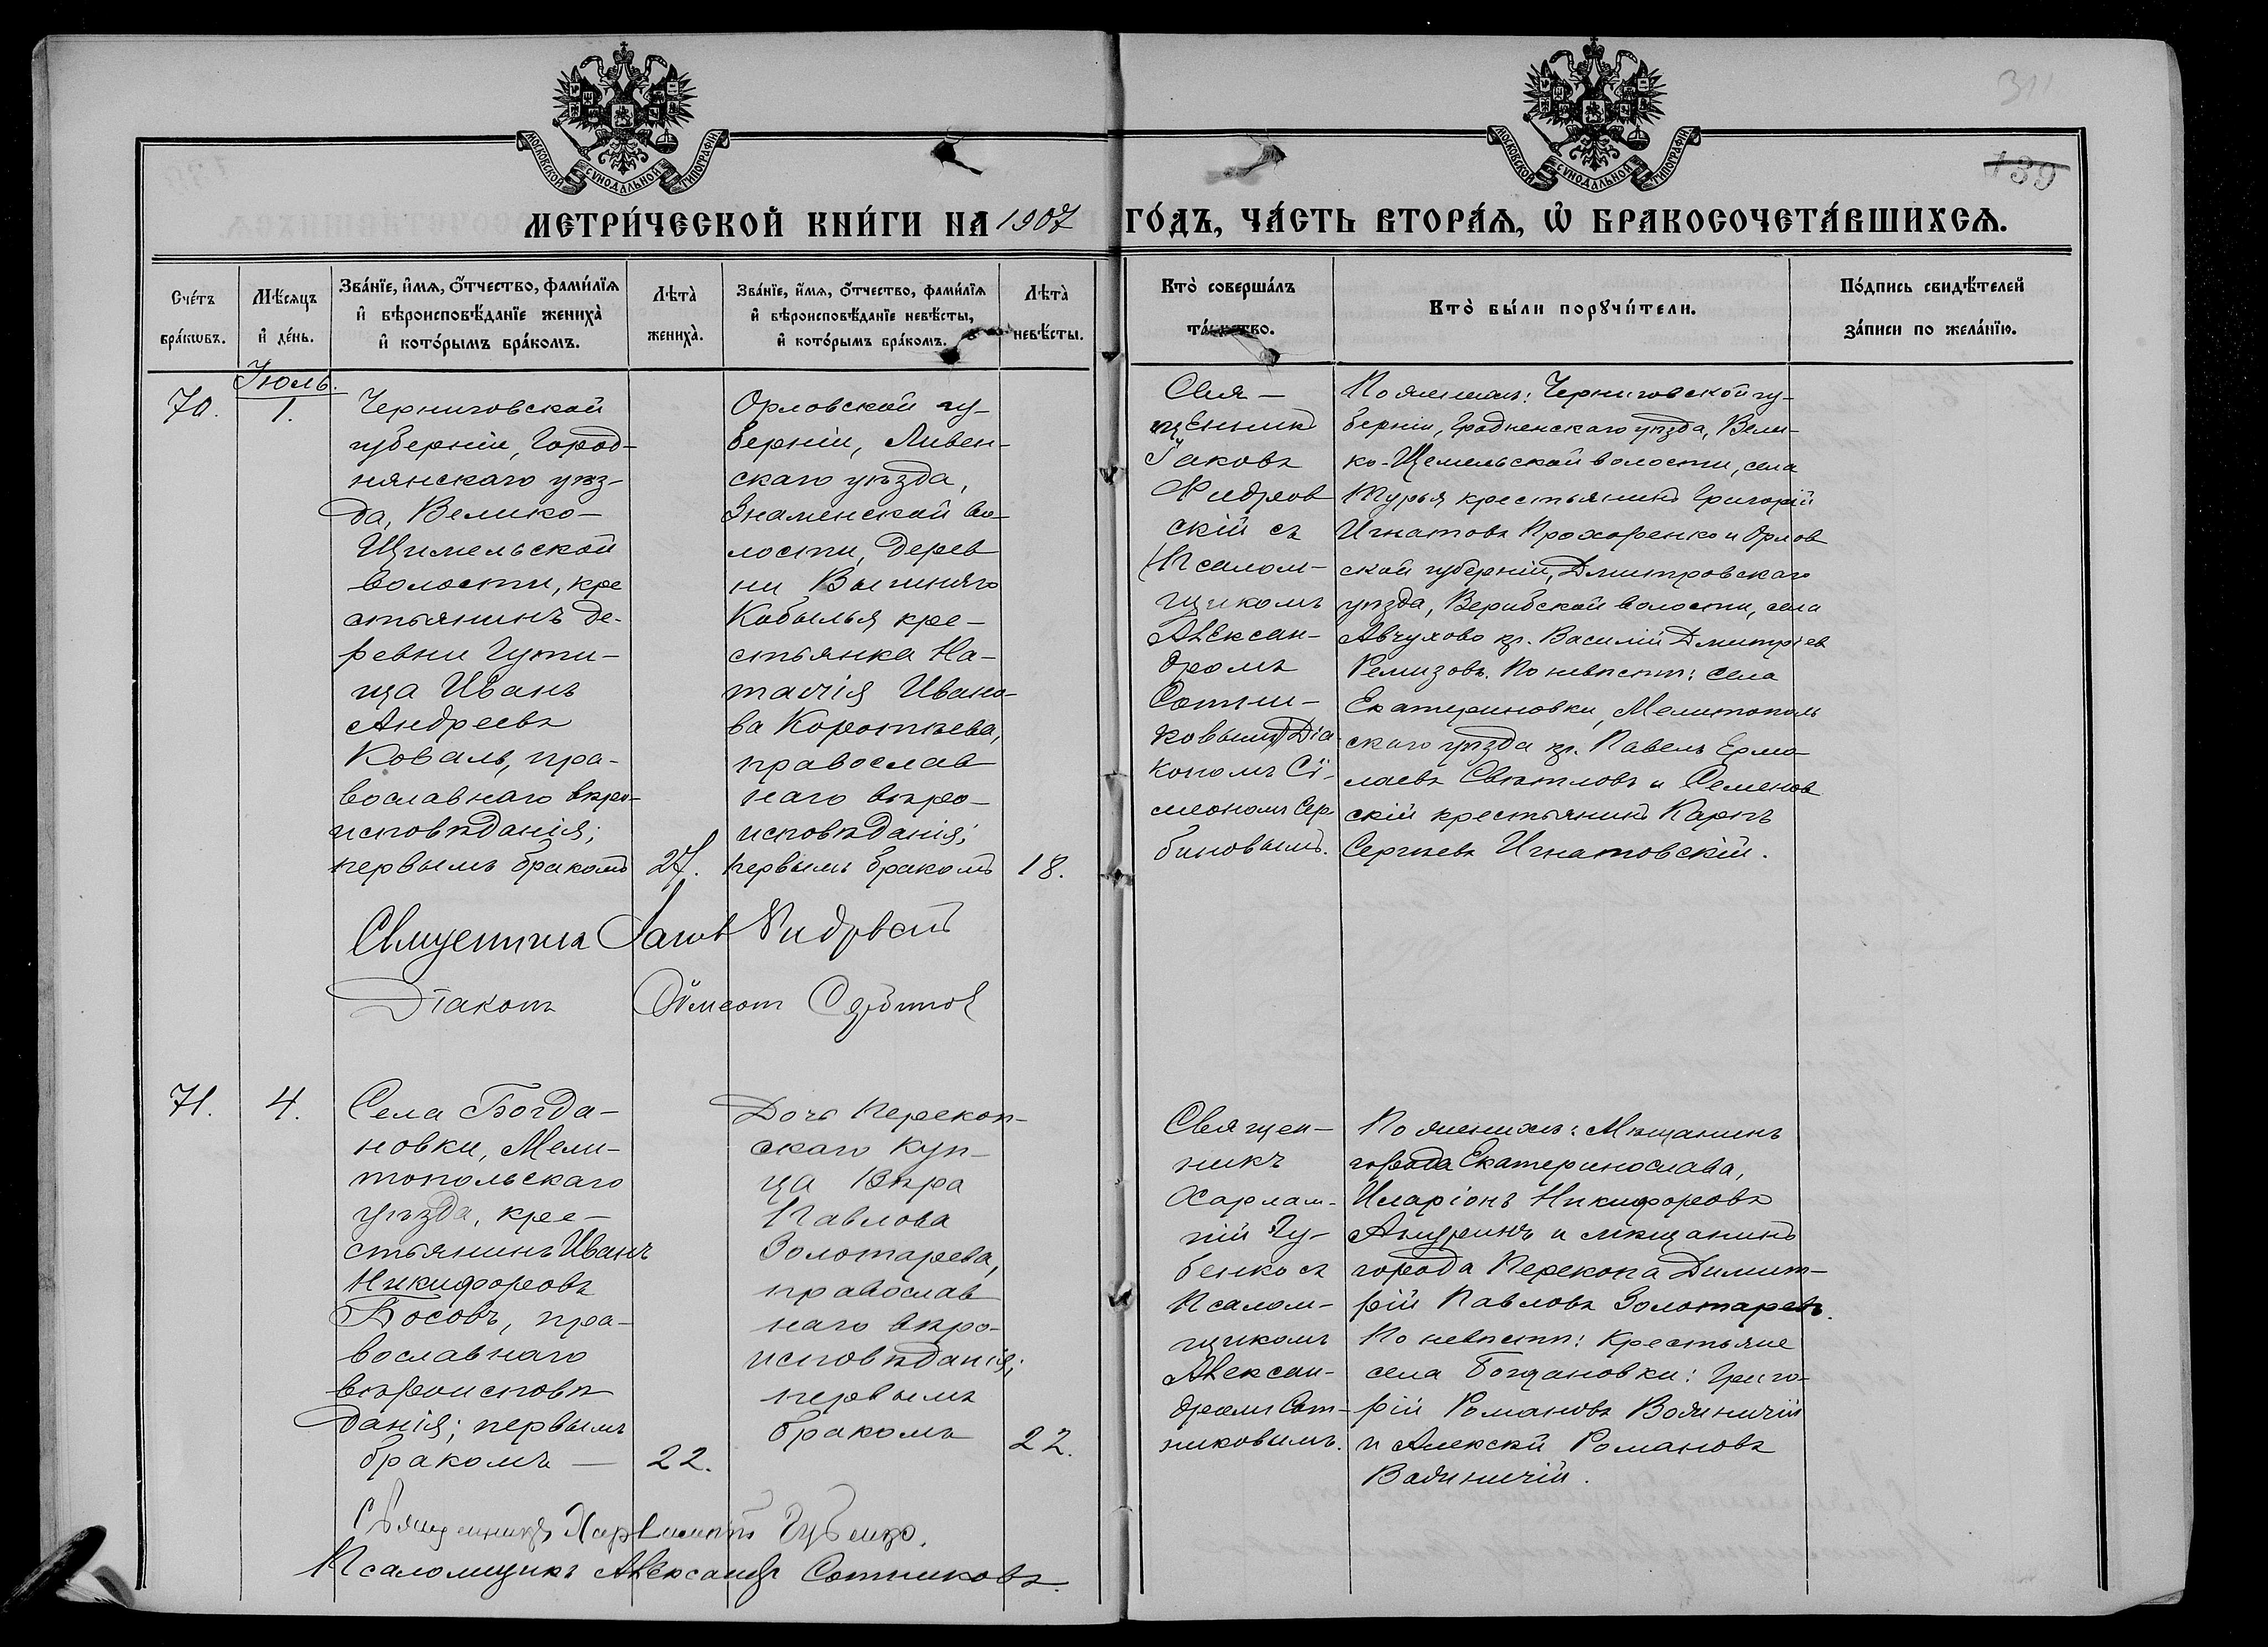 311
139
МОСКОВСКОЙ СѴНОДАЛЬНОЙ ТИПОГРАФІИ
МОСКОВСКОЙ СѴНОДАЛЬНОЙ ТИПОГРАФІИ
МЕТРИ́ЧЕСКОЙ КНИ́ГИ НА 1907 ГО́ДЪ, ЧА́СТЬ ВТОРА́Ѧ, Ѡ҆ БРАКОСОЧЕТА́ВШИХСѦ.
Сче́тъ
бра́кѡвъ.
Мѣ́сѧцъ
и҆ де́нь.
Зва́нїе, и҆́мѧ, ѻ҆́тчество, фами́лїѧ
и҆ вѣроисповѣ́данїе жениха̀
и҆ кото́рымъ бра́комъ.
Лѣта̀
жениха̀.
Зва́нїе, и҆́мѧ, ѻ҆́тчество, фами́лїѧ
и҆ вѣроисповѣ́данїе невѣ́сты,
и҆ кото́рымъ бра́комъ.
Лѣта̀
невѣ́сты.
Кто̀ соверша́лъ
та́инство.
Кто̀ бы́ли порꙋчи́тели.
По́дпись свидѣ́телей
за́писи по жела́нїю.
Іюль.
70.
1.
Черниговской
губерніи, Город-
нянскаго уѣз-
да, Велико-
Щимельской
волости, кре
стьянинъ де-
ревни Гути-
ща Иванъ
Андреевъ
Коваль, пра-
вославнаго вѣро-
исповѣданія;
первымъ бракомъ
27.
Орловской гу-
берніи, Ливен-
скаго уѣзда,
Знаменской во-
лости, дерев
ни Вышняго
Кобылья кре-
стьянка На-
талія Ивано-
ва Коротѣева,
православ
наго вѣро-
исповѣданія;
первымъ бракомъ
18.
Свя-
щенникъ
Іаковъ
скій съ
Псалом-
щикомъ
Алексан-
дромъ
Сотни-
ковымъ Діа
кономъ Сѵ-
меономъ Сер
биновымъ.
По женихѣ: Черниговской гу-
берніи, Гродненскаго уѣзда, Вели-
ко-Щемельской волости, села
Турья крестьянинъ Григорій
Игнатовъ Прохоренко и Орлов
ской губерніи, Дмитровскаго
уѣзда, Веребской волости, села
Авчухово кр. Василій Дмитріев
Ремизовъ. По невѣстѣ: села
Екатериновки, Мелитополь
скаго уѣзда кр. Павелъ Ермо
лаевъ Свѣтловъ и Семенов
скій крестьянинъ Карпъ
Сергѣевъ Игнатовскій.
Священникъ Іаковъ
Діаконъ Сѵмеонъ Сербиновъ
71.
4.
Села Богда-
новки, Мели-
топольскаго
уѣзда, кре-
стьянинъ Иванъ
Никифоровъ
Босовъ, пра-
вославнаго
вѣроисповѣ
данія; первымъ
бракомъ —
22.
Дочь Перекоп-
скаго куп-
ца Вѣра
Павлова
Золотарева,
православ
наго вѣро-
исповѣданія;
первымъ
бракомъ
22.
Священ-
никъ
Харлам-
пій Гу-
бенко съ
Псалом-
щикомъ
Алексан-
дромъ Сот-
никовымъ.
По женихѣ: Мѣщанинъ
города Екатеринослава,
Иларіонъ Никифоровъ
и мѣщанинъ
города Перекопа Димит-
рій Павловъ Золотаревъ.
По невѣстѣ: Крестьяне
села Богдановки: Григо-
рій Романовъ
и Алексѣй Романовъ
Священникъ Харлампій Губенко.
Псаломщикъ Александръ Сотниковъ.